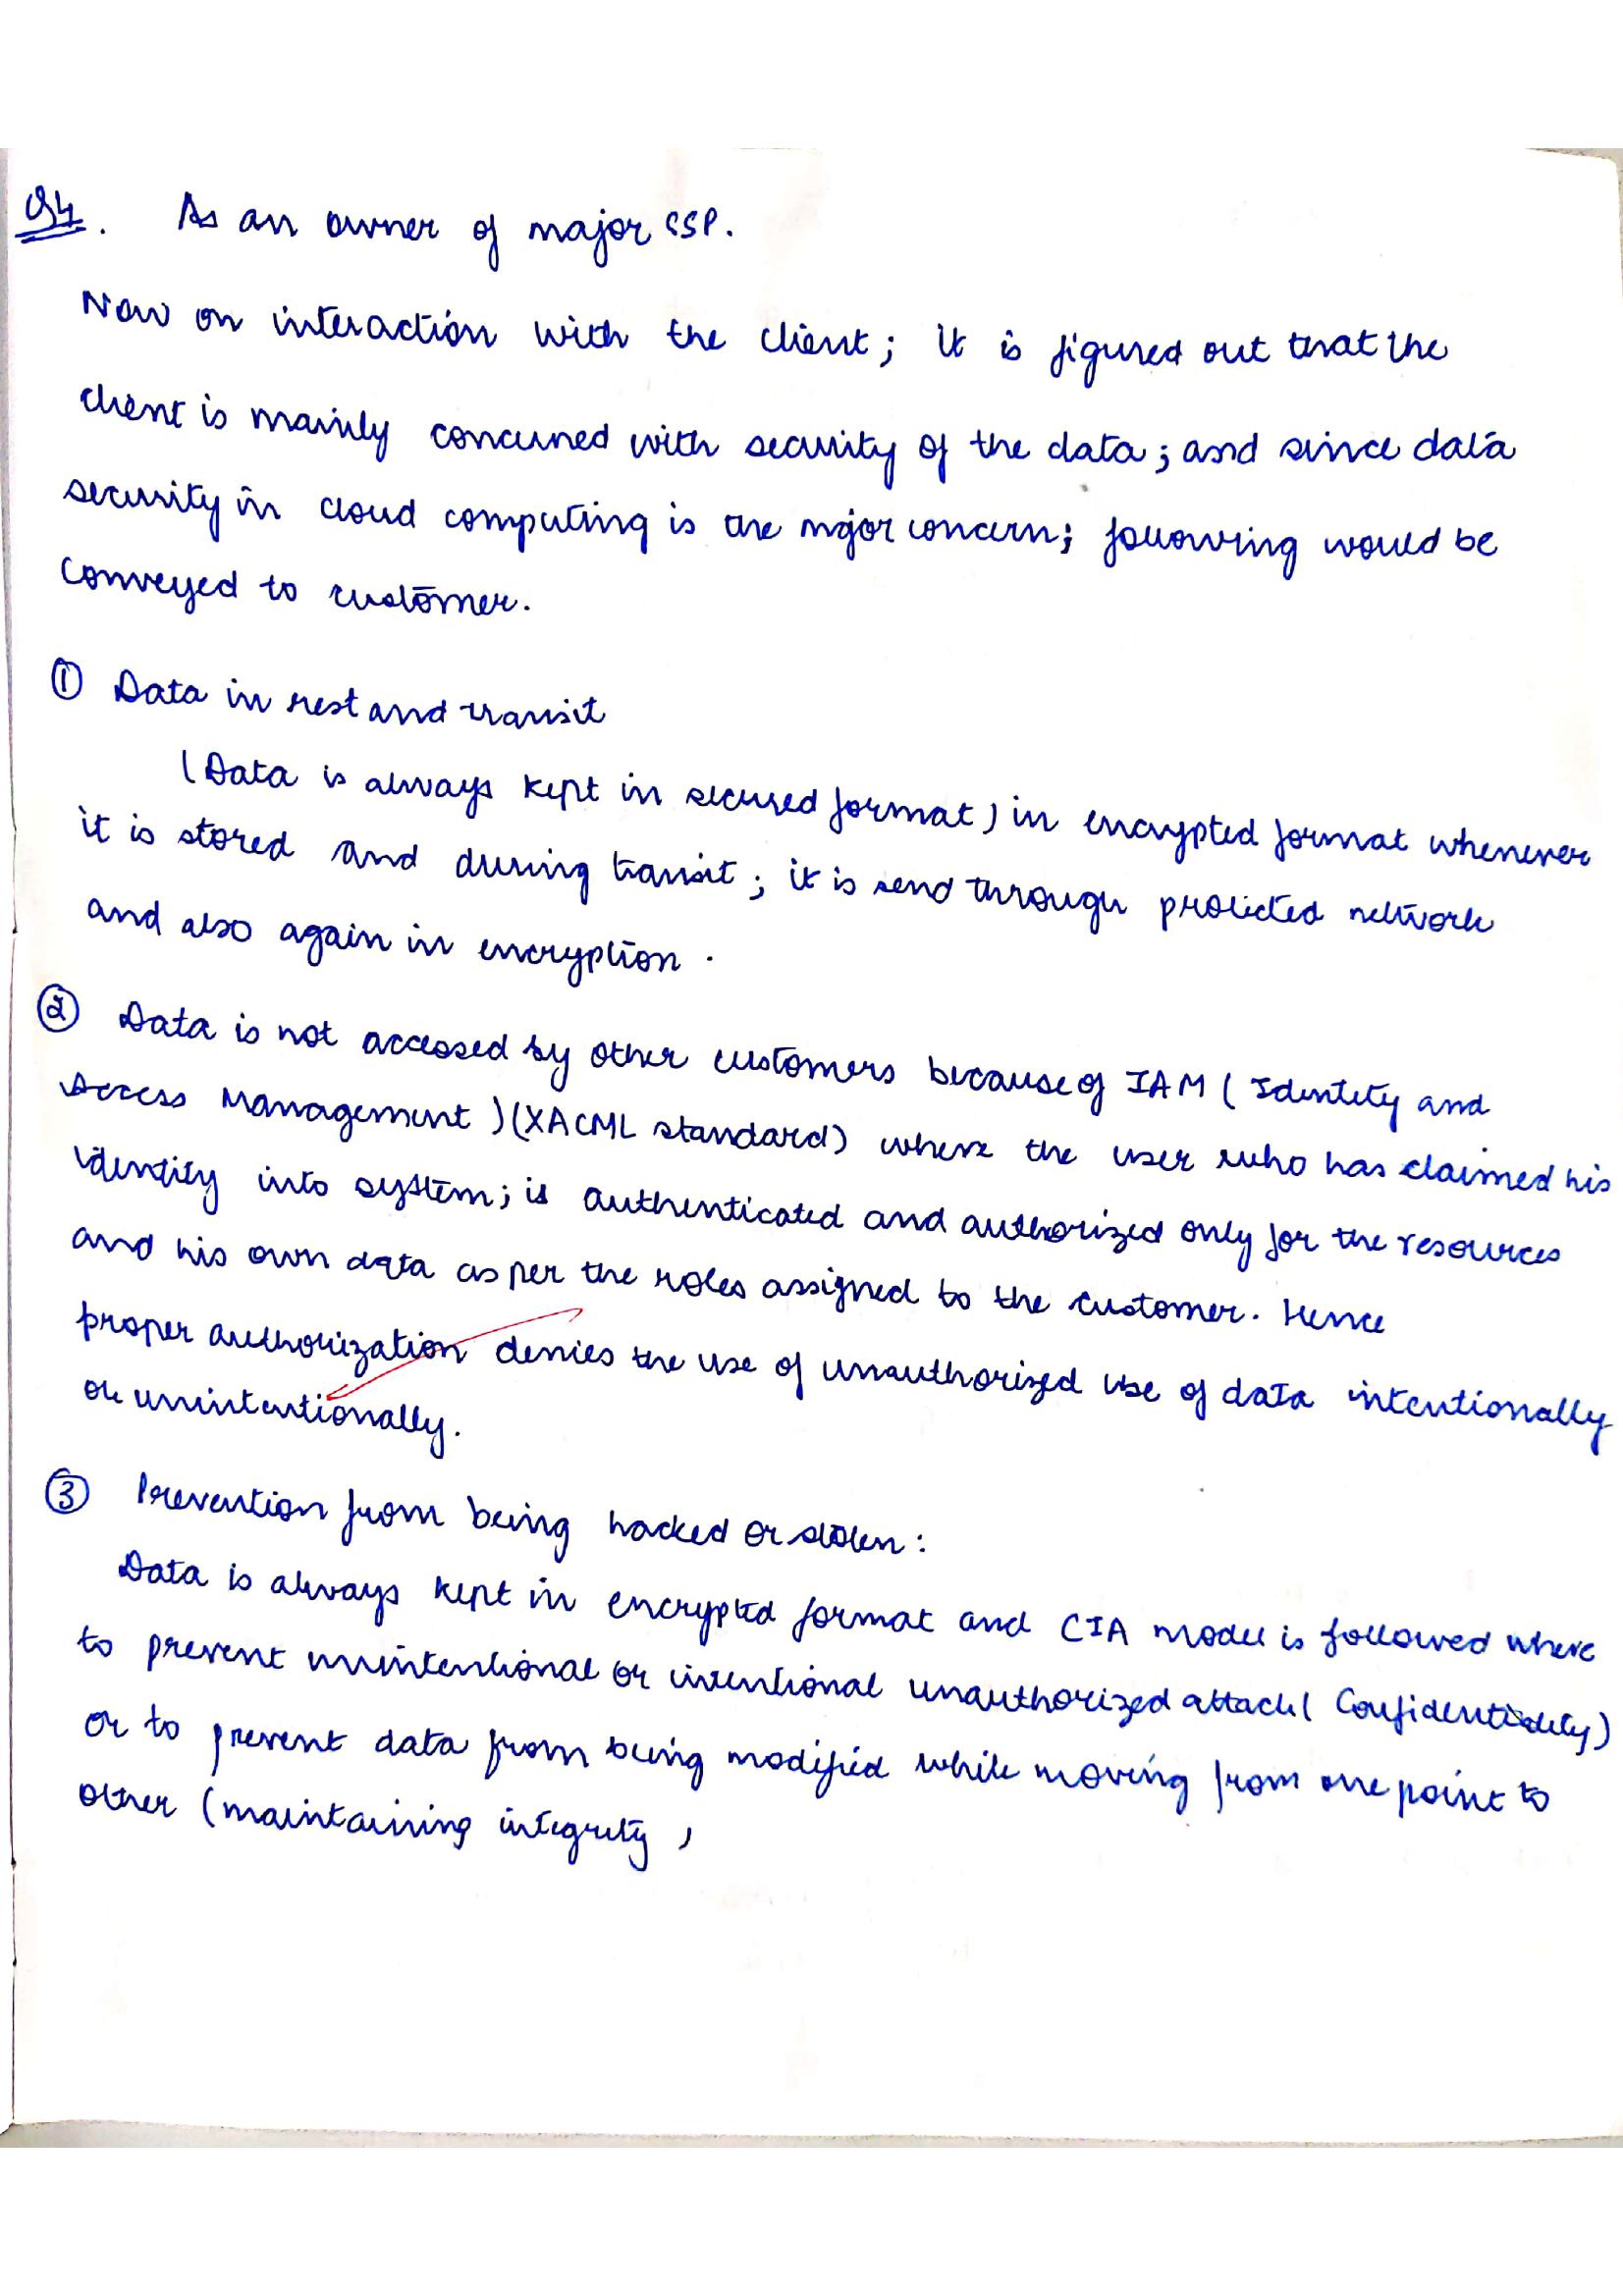 Q4. As an owner of major CSP.
Now on interaction with the client; it is figured out that the
client is mainly concerned with security of the data; and since data
security in cloud computing is the major concern; following would be
conveyed to customer.
① Data in rest and transit
(Data is always kept in secured format) in encrypted format whenever
it is stored and during transit; it is send through protected network
and also again in encryption.
② Data is not accessed by other customers because of IAM (Identity and
Access Management) (XACML standard) where the user who has claimed his
identity into system; is authenticated and authorized only for the resources
and his own data as per the roles assigned to the customer. Hence
proper authorization denies the use of unauthorized use of data intentionally
or unintentionally.
③ Prevention from being hacked or stolen:
Data is always kept in encrypted format and CIA model is followed where
to prevent unintentional or intentional unauthorized attack (Confidentiality)
or to prevent data from being modified while moving from one point to
other (maintaining integrity)